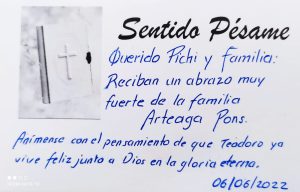 Sentido Pésame
Querido Pichi y Familia:
Reciban un abrazo muy
fuerte de la familia
Arteaga Pons.
Anímense con el pensamiento de que Teodoro ya
vive feliz junto a Dios en la gloria eterna.
06/06/2022